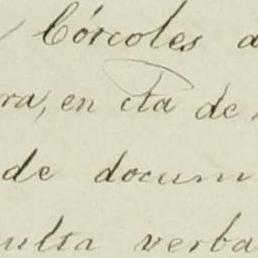 Córcoles a
ra, en cta de
de docum
ulta verba